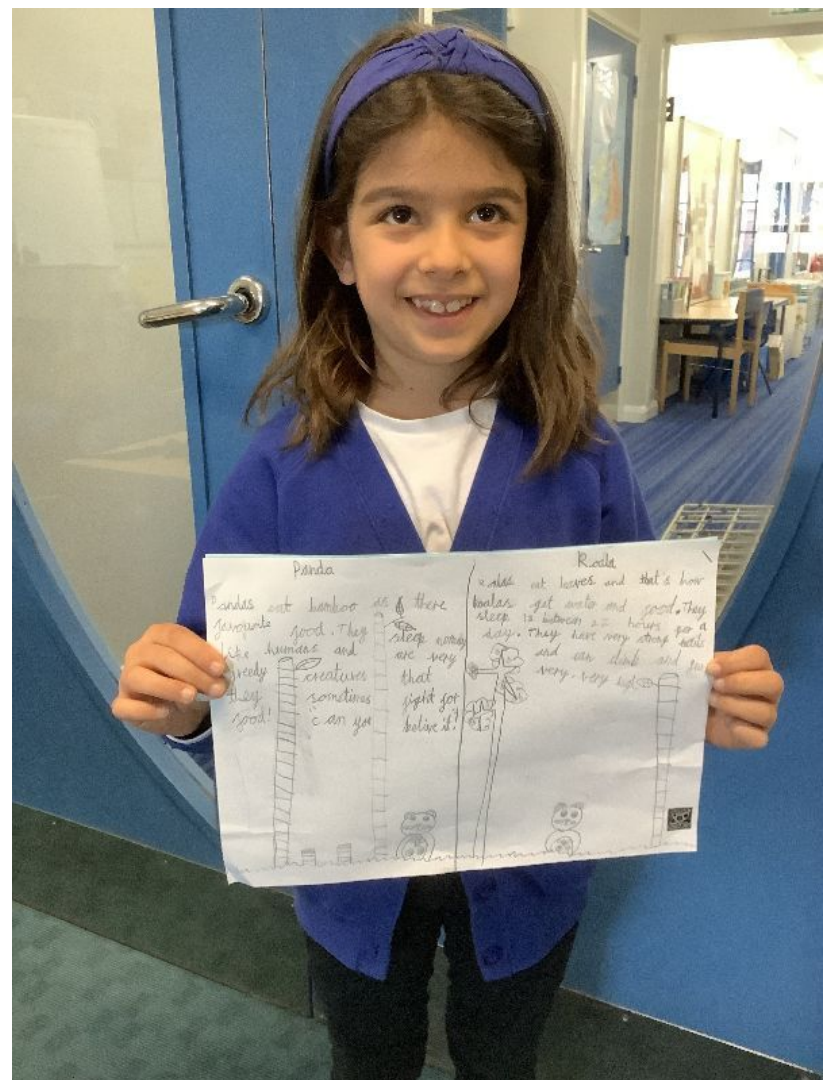 Panda
Pandas eat bamboo as there
favourite food. They sleep
like humans and are very
greedy creatures that
they sometimes fight for
food! Can you belive it?
Koala
Koalas eat leaves and that's how
koalas get water and food. They
sleep 12 between 22 hours per a
day. They have very strong
and can climb and
very, very high